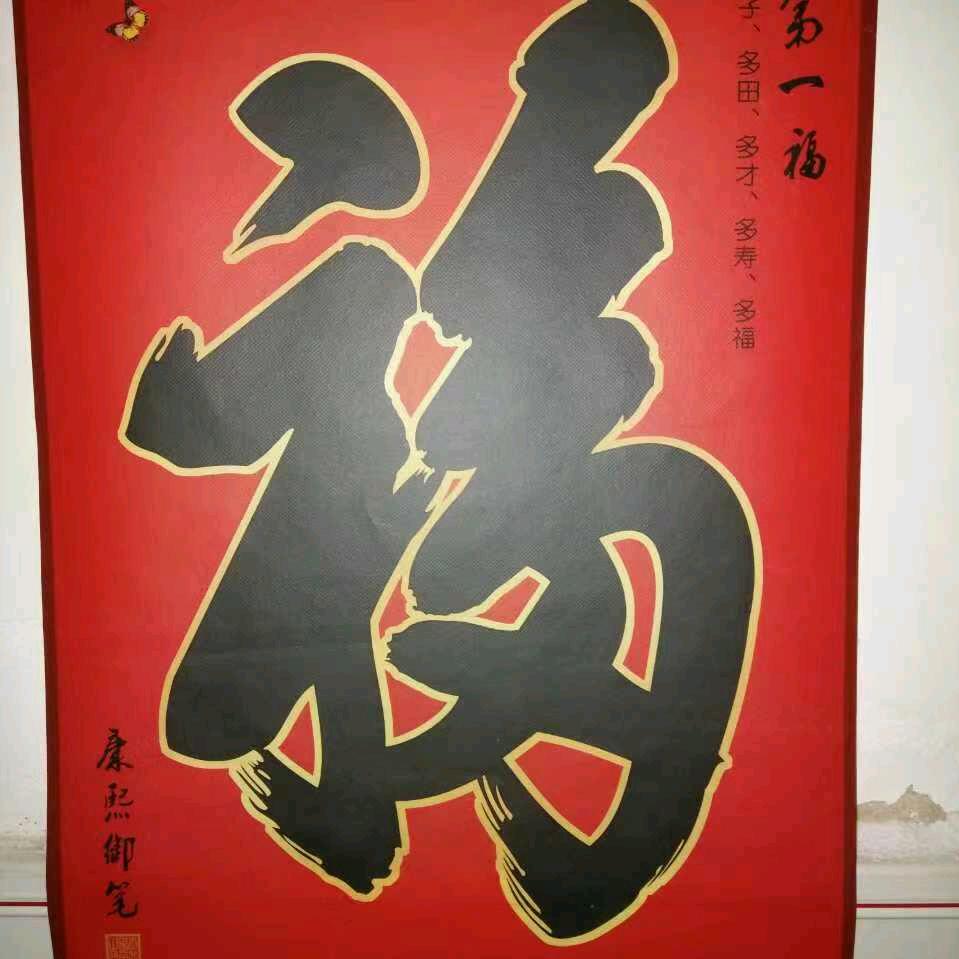 第一福
子、多田、多才、多寿、多福
福
康熙御笔